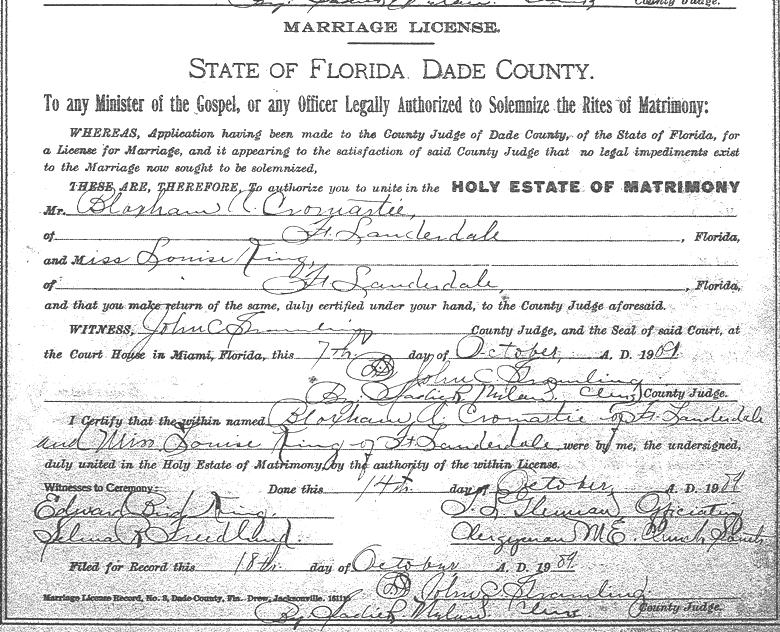 County Judge.
MARRIAGE LICENSE.
STATE OF FLORIDA DADE COUNTY.
To any Minister of the Gospel, or any Officer Legally Authorized to Solemnize the Rites of Matrimony:
WHEREAS, Application having been made to the County Judge of Dade County, of the State of Florida, for
a License for Marriage, and it appearing to the satisfaction of said County Judge that no legal impediments exist
to the Marriage now sought to be solemnized,
THESE ARE, THEREFORE, To authorize you to unite in the HOLY ESTATE OF MATRIMONY
Mr. Bloxham A. Cromartie,
of Ft. Lauderdale, Florida,
and Miss Louise King,
of Ft. Lauderdale, Florida,
and that you make return of the same, duly certified under your hand, to the County Judge aforesaid.
WITNESS, John C Gramling County Judge, and the Seal of said Court, at
the Court House in Miami, Florida, this 7th day of October A. D. 1909
John C. Gramling
By. Sadie R County Judge.
I Certify that the within named Bloxham A. Cromartie of Ft. Lauderdale
and Miss Louise King of Ft Lauderdale were by me, the undersigned,
duly united in the Holy Estate of Matrimony, by the authority of the within License.
Witnesses to Ceremony: Done this 14th day of October A. D. 1909
Edward King. Officiating
Selma Clergyman M.E. Church South
Filed for Record this 18th day of October A. D. 1909
John C. Gramling
Marriage License Record, No. 3, Dade County, Fla. Drew, Jacksonville. County Judge.
By. Sadie R